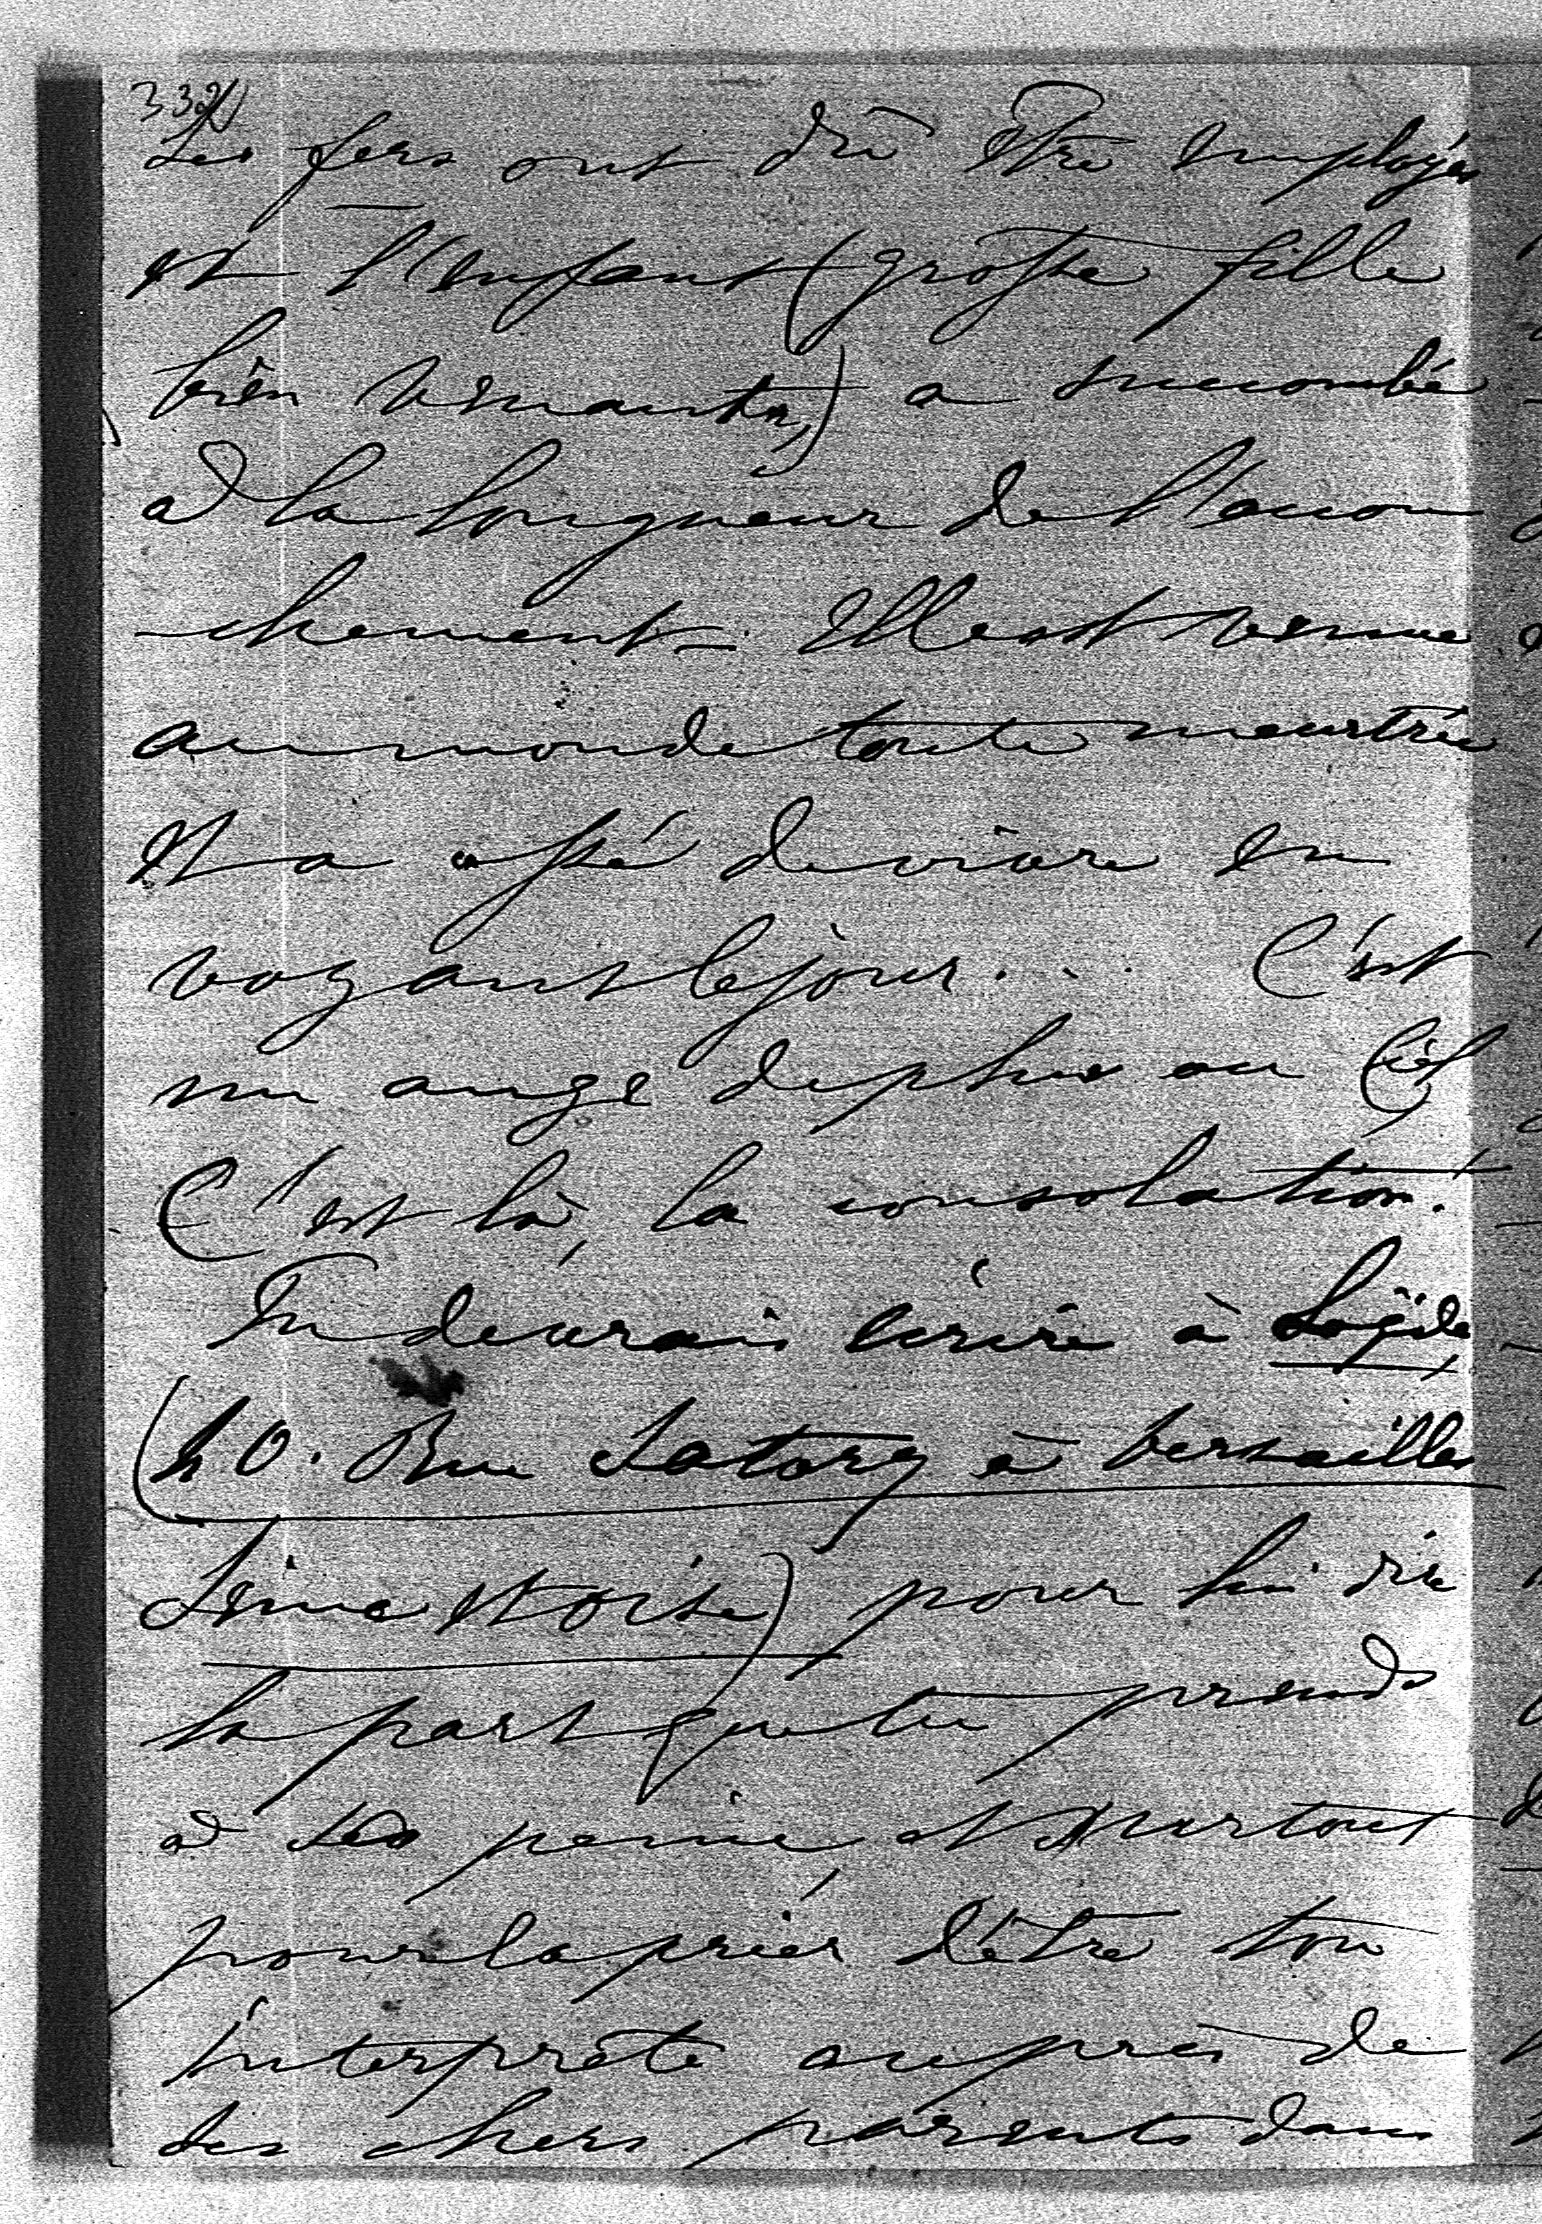 332
Les fers ont dû être employés
et l'enfant (grosse fille
bien venante,) a succombé
à la longueur de l'accou
chement. Elle est venue
au monde toute meurtrie
et a cessé de vivre en
voyant le jour... C'est
un ange de plus au Ciel
C'est là, la consolation!
Tu devrais écrire à
(40. Rue Satory à Versailles
Seine et Oise) pour lui dire
la part que tu prends
à sa peine, et surtout
pour la prier d'être ton
interprète auprès de
ses chers parents dans